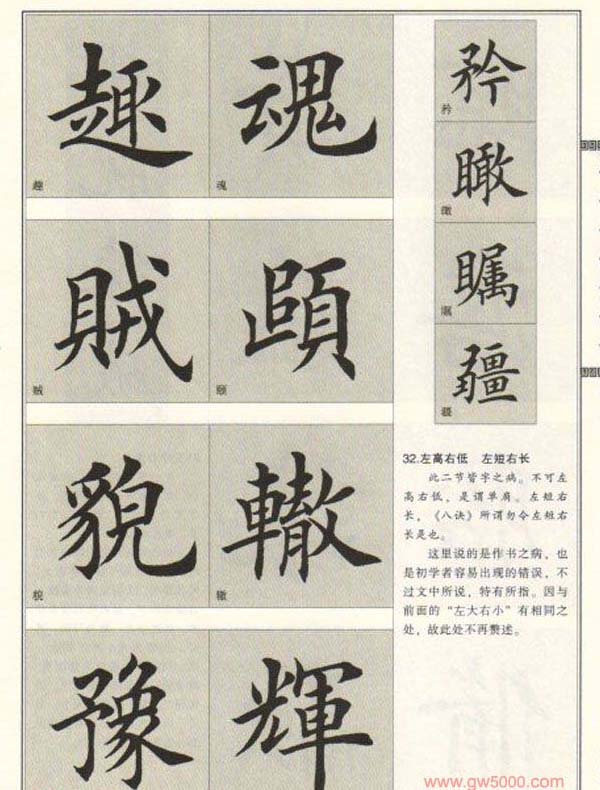 趣 魂
趣 魂
賊 頤
贼 颐
貌 轍
豫 輝
矜
矜
瞰
瞰
矚
疆
疆
32.左高右低 左短右长
此二节皆字之病。不可左
高右低，是谓单肩。左短右
长，《八诀》所谓勿令左短右
长是也。
这里说的是作书之病，也
是初学者容易出现的错误，不
过文中所说，特有所指。因与
前面的“左大右小”有相同之
处，故此处不再赘述。
www.gw5000.com